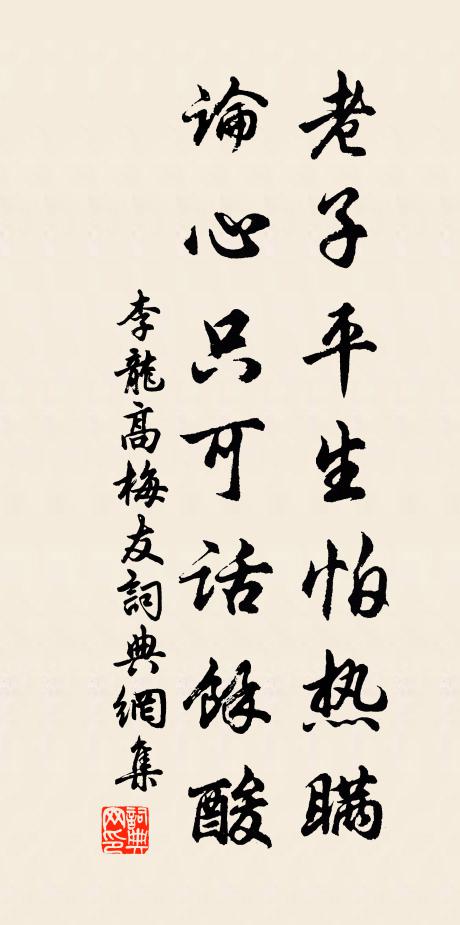 老子平生怕热瞒
論心只可話餘酸
李龍高梅友詞典網集
詞典網印